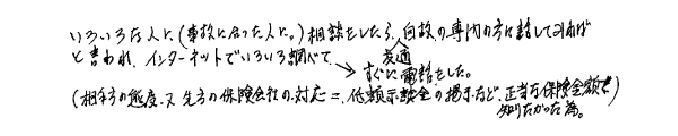 いろいろな人に(事故に合った人に。)相談をしたら、自故の専門の方に話してみれば
と言われ、インターネットでいろいろ調べて
交通
→すぐに電話をした。
(相手方の態度、又先方の保険会社の対応=低額示談金の提示など、正当な保険金額を)
知りたかった為。